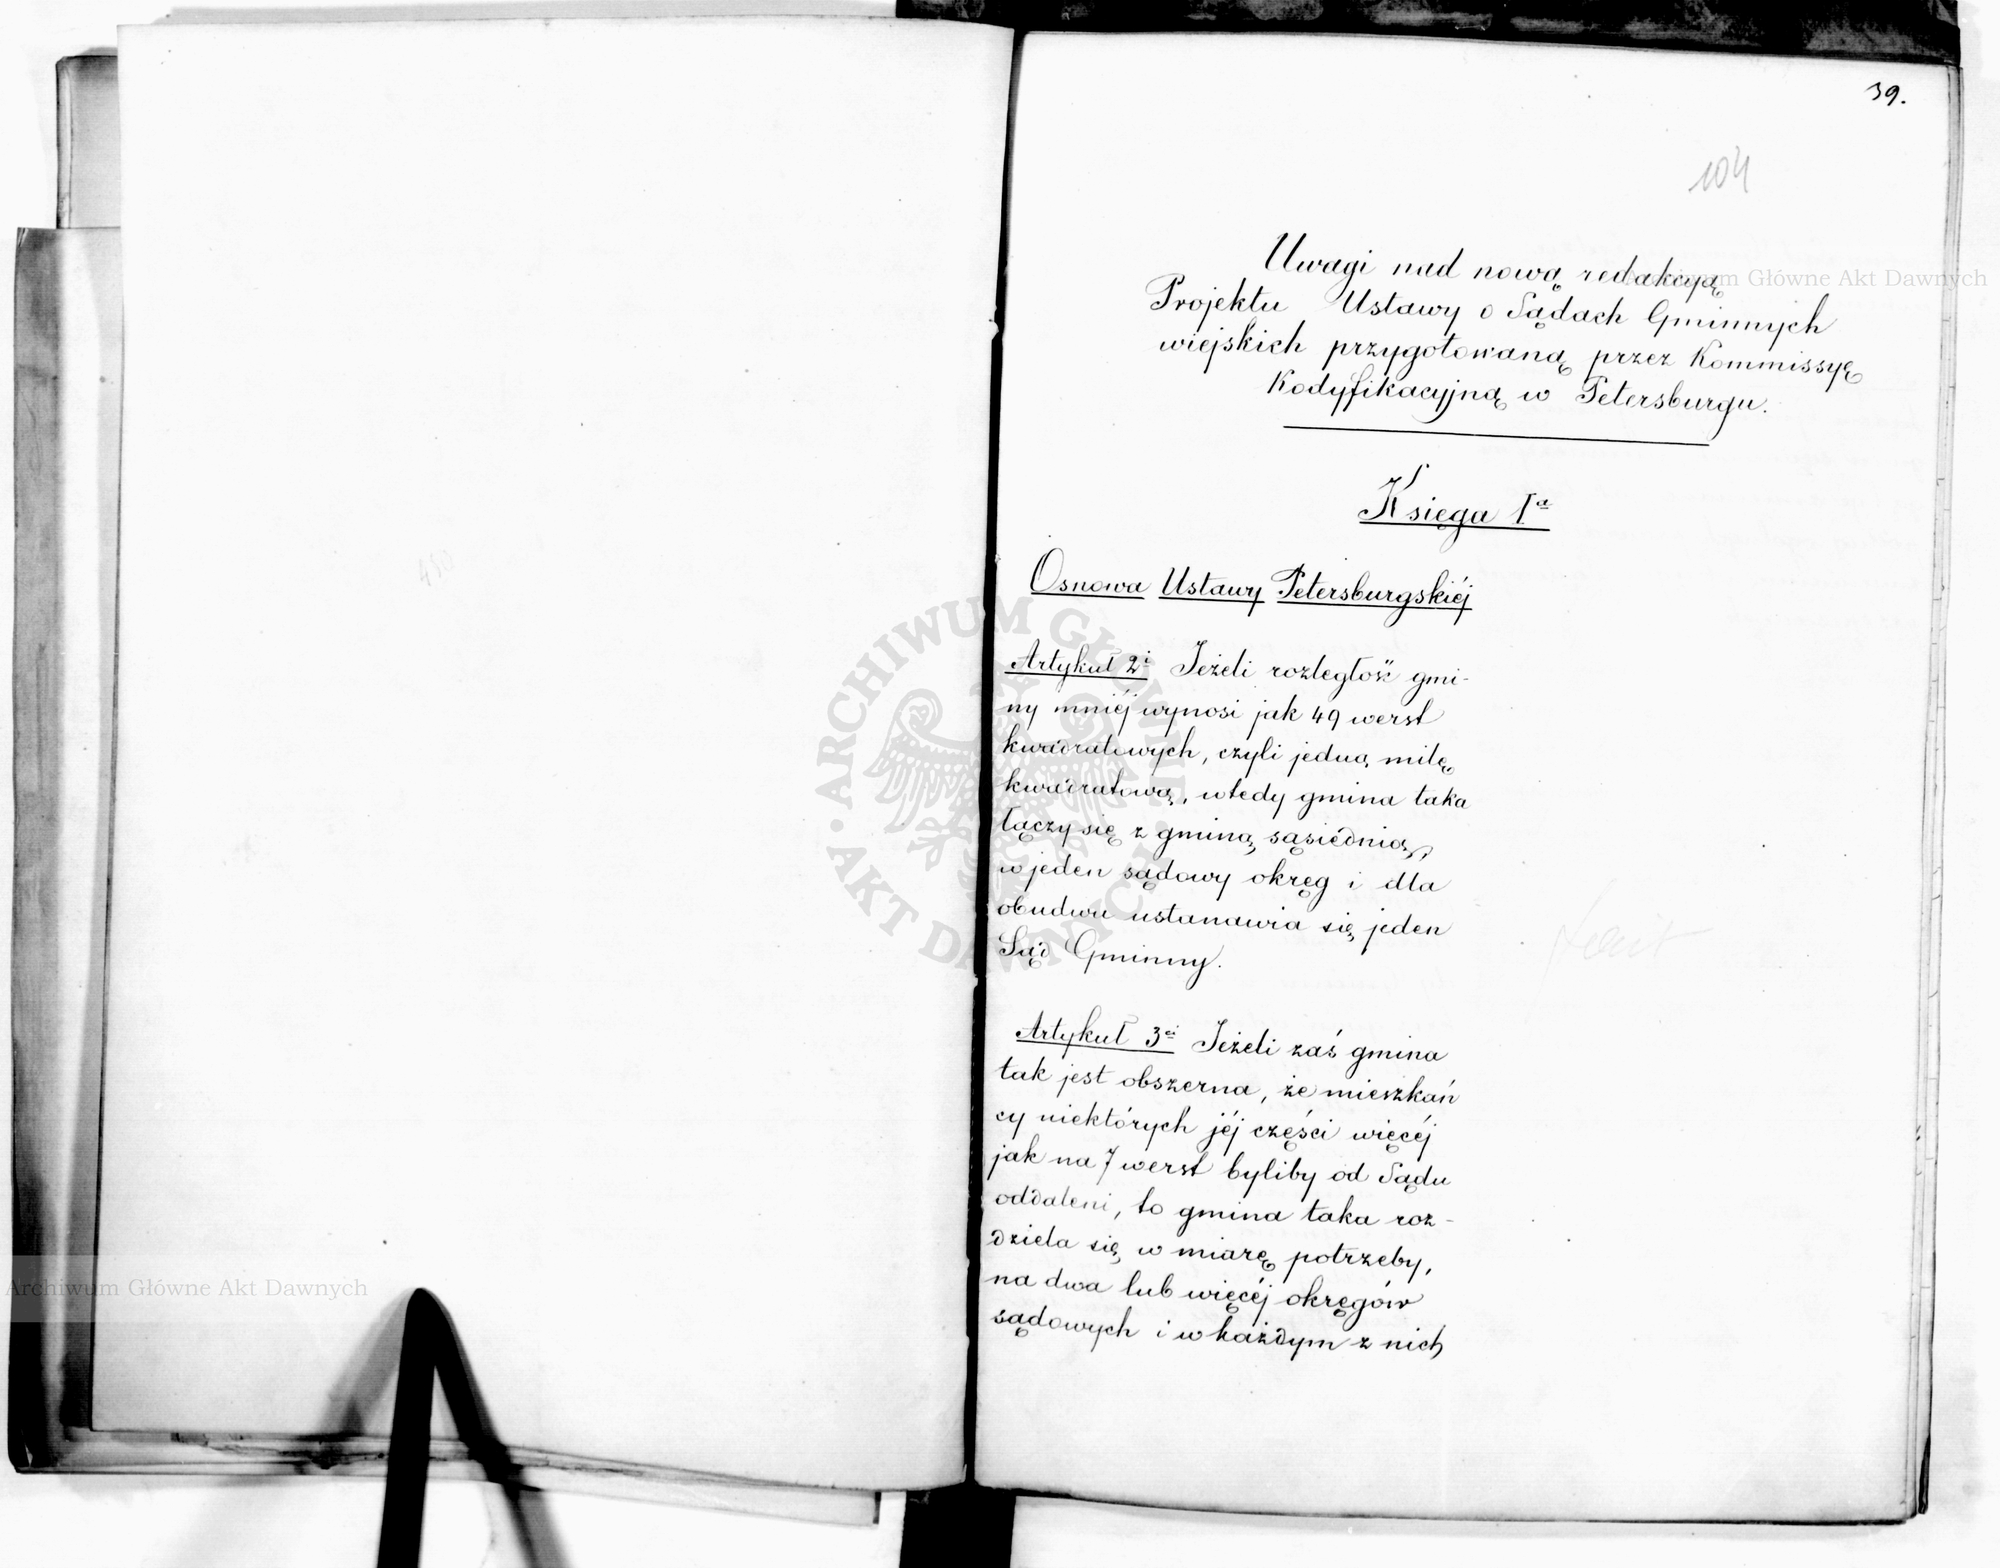 39.
104
Uwagi nad nową redakcyą
Projektu Ustawy o Sądach Gminnych
wiejskich przygotowaną przez Kommissyę
Kodyfikacyjną w Petersburgu.
Księga Iª
Osnowa Ustawy Petersburgskiéj
Artykuł 2i Jeżeli rozległość gmi-
ny mniéj wynosi jak 49 werst
kwadratowych, czyli jedną milę
kwadratową, wtedy gmina taka
łączy się z gminą sąsiednią,
w jeden sądowy okręg i dla
obudwu ustanawia się jeden
Sąd Gminny.
Artykuł 3ci Jeżeli zaś gmina
tak jest obszerna, że mieszkań
cy niektórych jéj części więcéj
jak na 7 werst byliby od Sądu
oddaleni, to gmina taka roz-
dziela się w miarę potrzeby,
na dwa lub więcéj okręgów
sądowych i w każdym z nich
Archiwum Główne Akt Dawnych
Archiwum Główne Akt Dawnych
ARCHIWUM GŁÓWNE AKT DAWNYCH